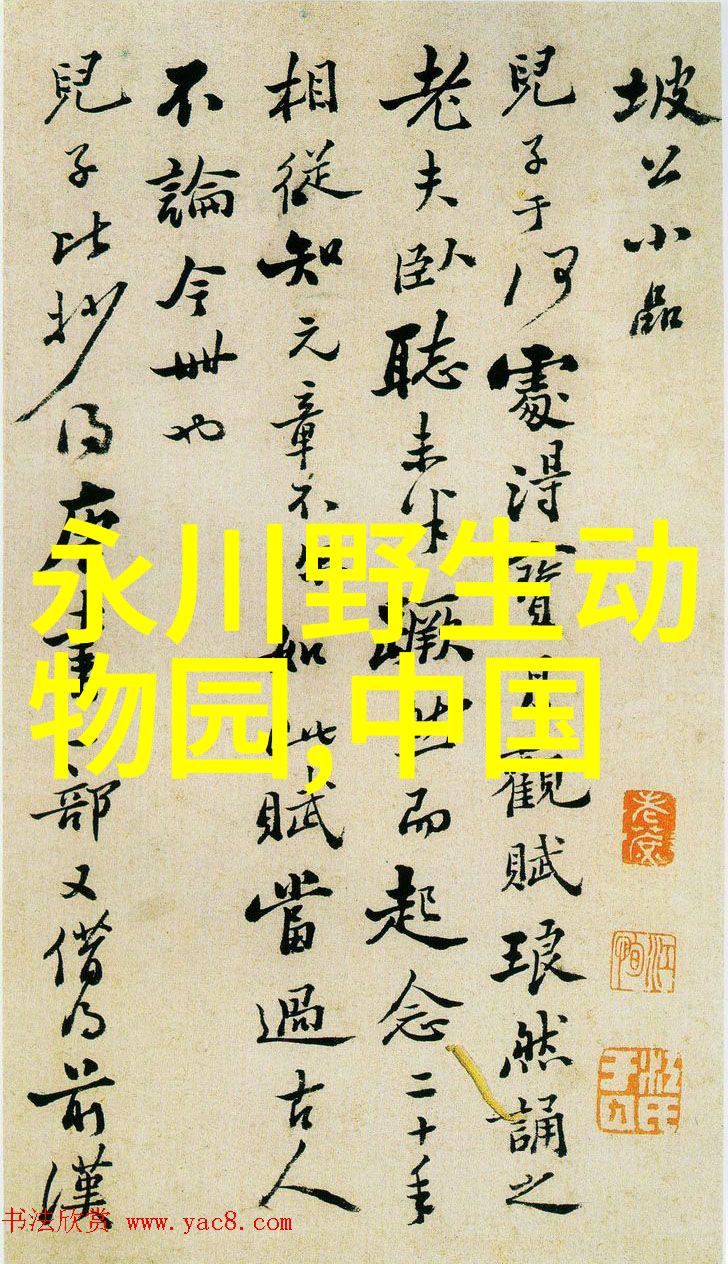 坡公小品
兒子于何處得寶月觀賦琅然誦之
老夫臥聽未半蹶然而起念二十年
相從知元章不如此賦當過古人
不論今世也
兒子比抄得唐一部又借得前漢
永川野生动
物园,中国
书法欣赏 www.yac8.com